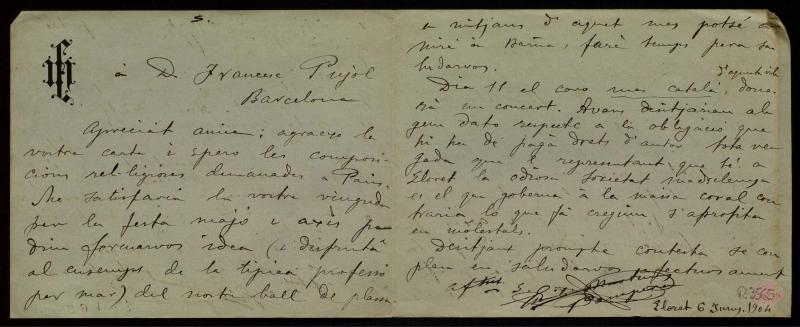 s.
à D. Francesc Pujol
Barcelona
Apreciat amic; agraeixo la
vostre carta i spero les composi-
cions religioses demanades a Paris.
Me satisfaria la vostre vinguda
per la festa majó i axis po
driu formarvos idea (i disfrutá
al ensemps de la típica professó
per mar) del nostre ball de plassa
a mitjans d'aquet mes potsé a
niré à Barna, faré temps pera sa
ludarvos.
Dia 11 el coro mes catalá, dona-
rá un concert. Avans dentjarian al
gun dato respecte a la obligació que
hi ha de pagá drets d'autor tota ve
gada que l representant que té a
Lloret la odiosa societat madrilenya
es el que goberna à la massa coral con
traria lo que fá cregum s'aprofita
en molestals.
Dentjant prompte contesta se com
plau en saludarvos afectuosament
R 3565
Lloret 6 Juny. 1904